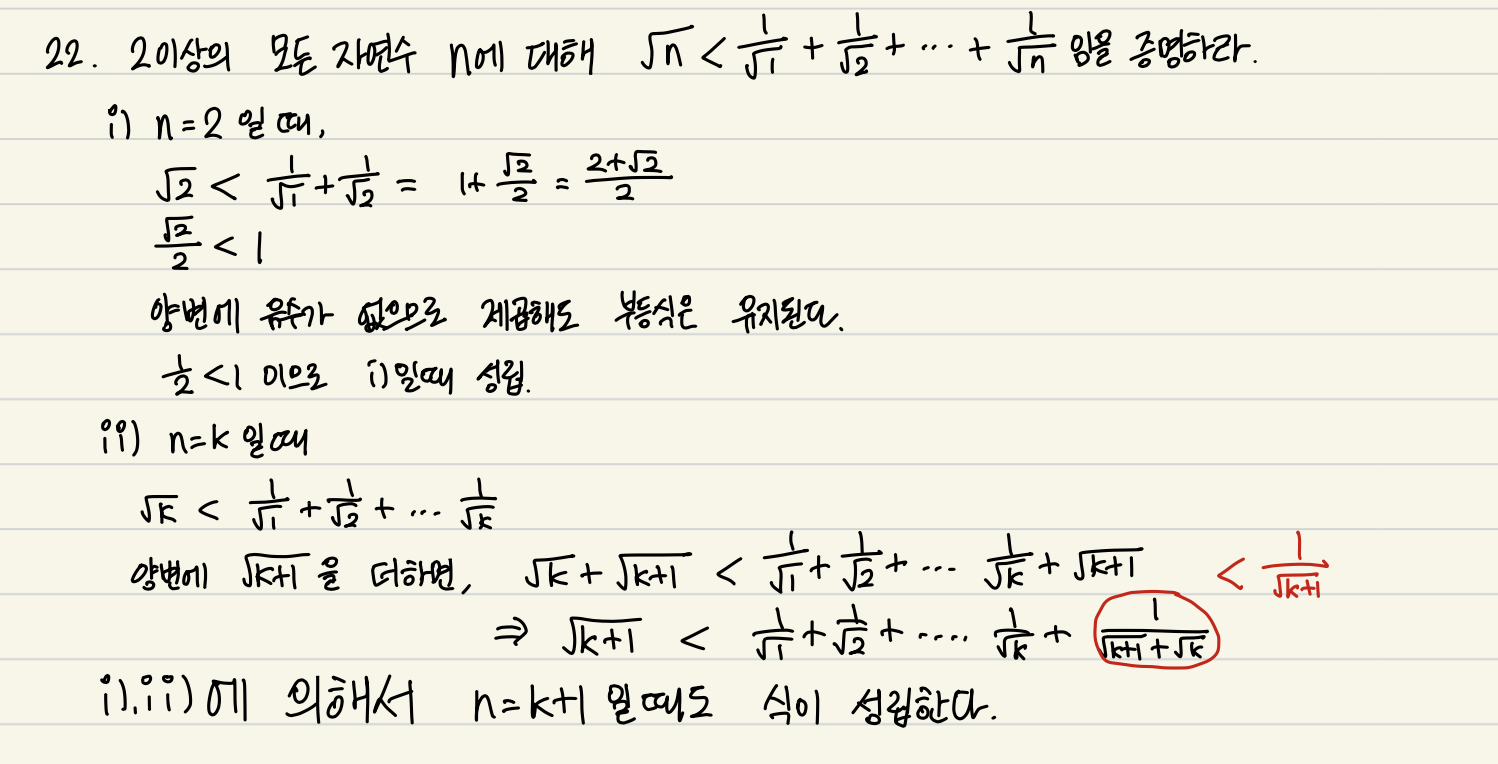 22. 2이상의 모든 자연수 n에 대해 √n < 1/√1 + 1/√2 + ··· + 1/√n 임을 증명하라.
i) n=2 일 때,
√2 < 1/√1 + 1/√2 = 1+ √2/2 = (2+√2)/2
√2/2 < 1
양변에 음수가 없으므로 제곱해도 부등식은 유지된다.
1/2 < 1 이므로 i)일때 성립.
ii) n=k 일때
√k < 1/√1 + 1/√2 + ··· 1/√k
양변에 √(k+1) 을 더하면, √k + √(k+1) < 1/√1 + 1/√2 + ··· 1/√k + √(k+1) < 1/√(k+1)
⇒ √(k+1) < 1/√1 + 1/√2 + ···· 1/√k + 1/(√(k+1) + √k)
i),ii)에 의해서 n=k+1 일때도 식이 성립한다.